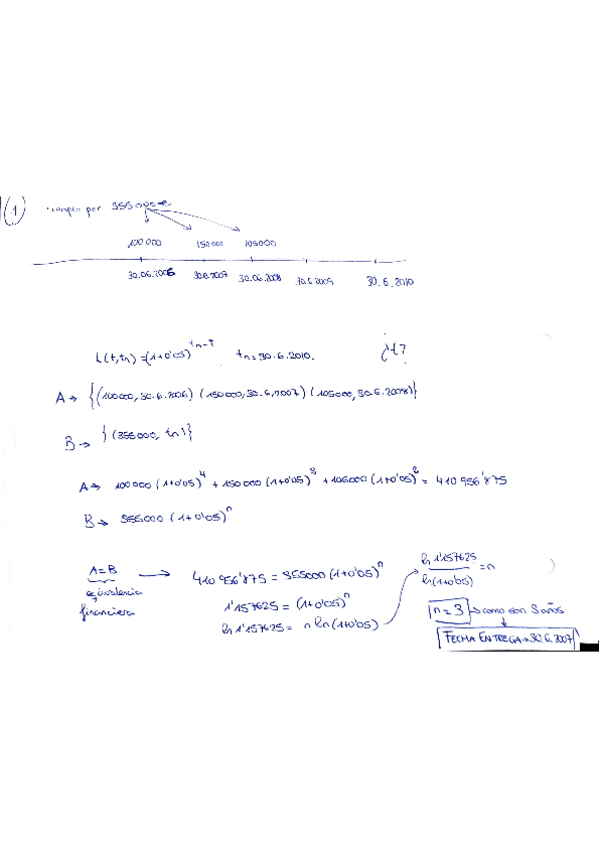 1 compro per 355000€
100 000 150 000 105000
30.06.2006 30.6.2007 30.06.2008 30.6.2009 30.6.2010
L(t,tn)=(1+0'05)^tn-t tn=30.6.2010. ¿t?
A → {(100000,30.6.2006) (150000,30.6.2007) (105000,30.6.2008)}
B → {(355000, tn)}
A → 100000 (1+0'05)^4 + 150000 (1+0'05)^3 + 105000 (1+0'05)^2 = 410 956'875
B → 355000 (1+0'05)^n
A=B → 410 956'875 = 355000 (1+0'05)^n
equivalencia
financiera
1'157625 = (1+0'05)^n
ln 1'157625 = n ln (1+0'05)
ln 1'157625 / ln(1+0'05) = n
n = 3 → como son 3 años
FECHA ENTREGA → 30.6.2007